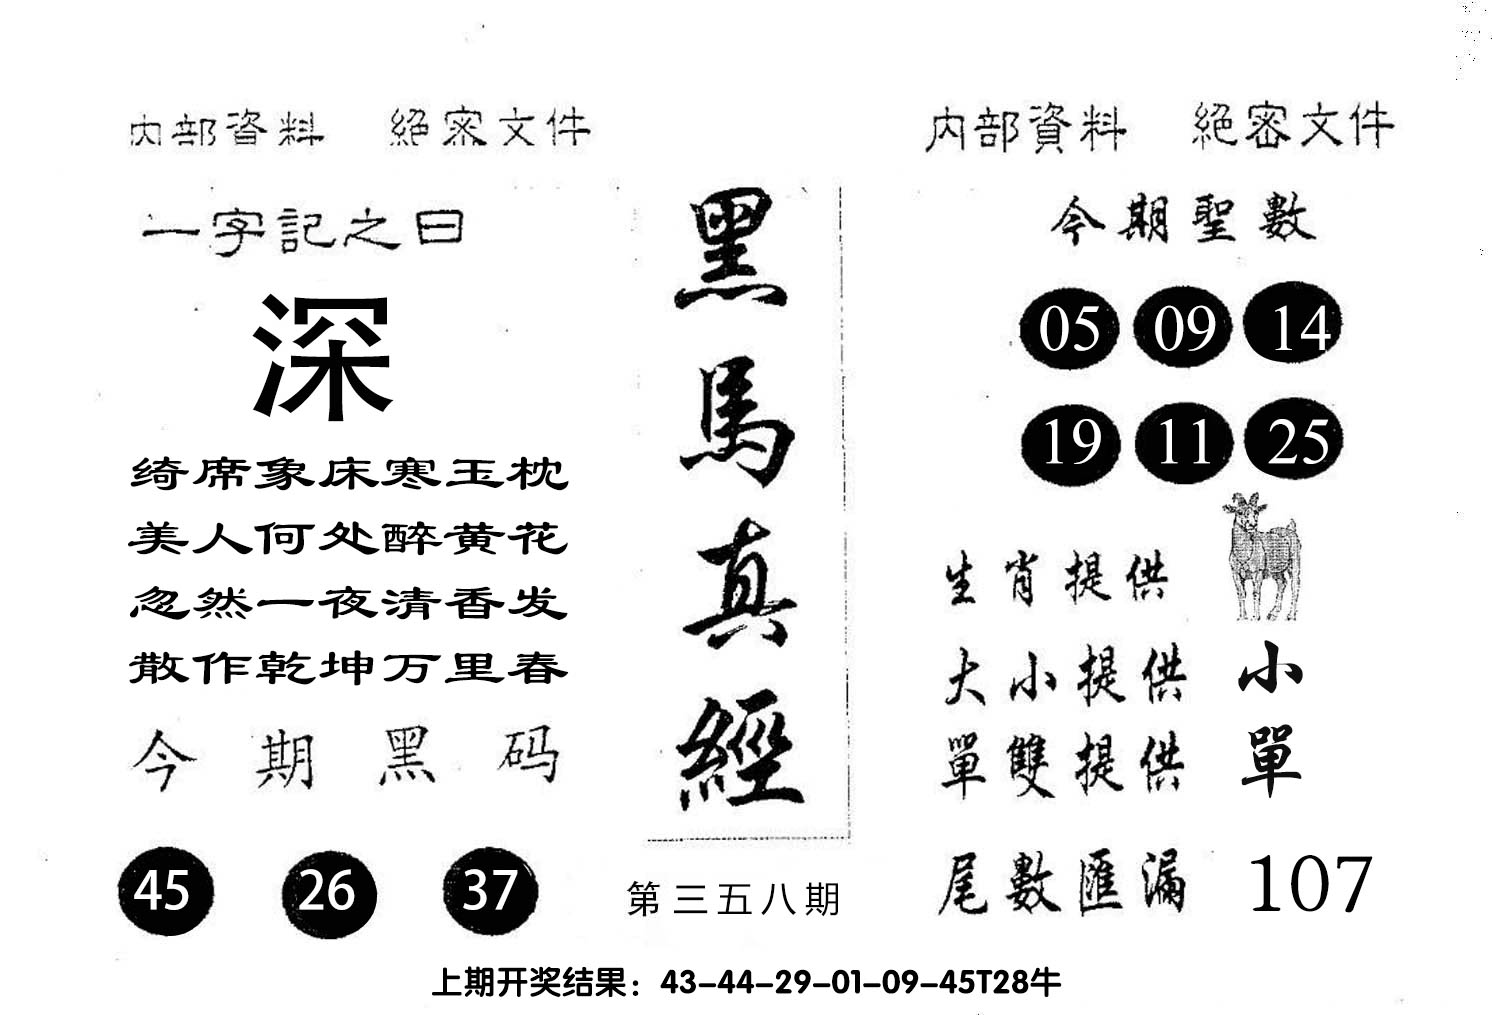 内部資料 絕密文件
一字記之曰
深
绮席象床寒玉枕
美人何处醉黄花
忽然一夜清香发
散作乾坤万里春
今期黑码
45 26 37
黑馬真經
第三五八期
内部資料 絕密文件
今期聖數
05 09 14
19 11 25
生肖提供
大小提供 小
單雙提供 單
尾數匯漏 107
上期开奖结果：43-44-29-01-09-45T28牛